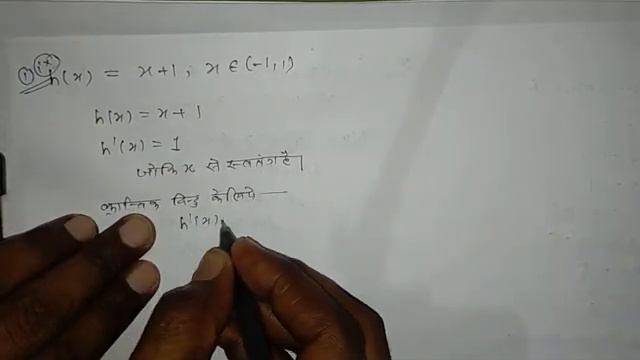 (i) (ix) h(x) = x+1 ; x ∈ (-1,1)
h(x) = x + 1
h'(x) = 1
जोकि x से स्वतंत्र है।
क्रान्तिक बिन्दु के लिये —
h'(x)